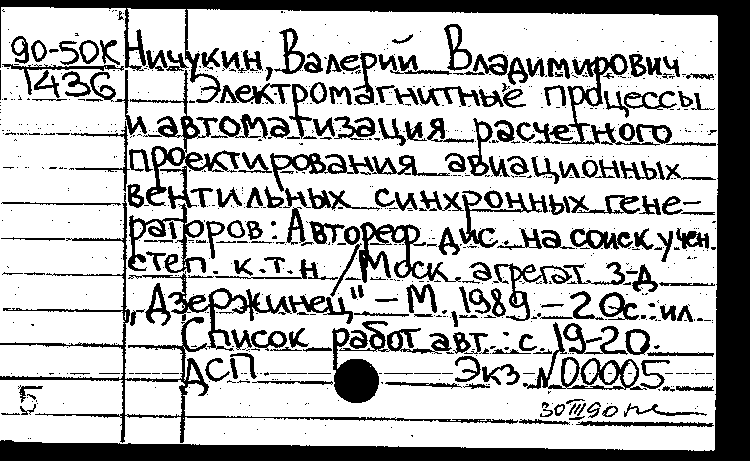 90-50К Ничукин, Валерий Владимирович
1436 Электромагнитные процессы
и автоматизация расчетного
проектирования авиационных
вентильных синхронных гене-
раторов: Автореф. дис. на соиск. учен.
степ. к.т.н. / Моск. агрегат. з-д
„Дзержинец". – М., 1989. – 20с.: ил.
Список работ авт.: с. 19-20.
ДСП. Экз N00005
5 30 III 90